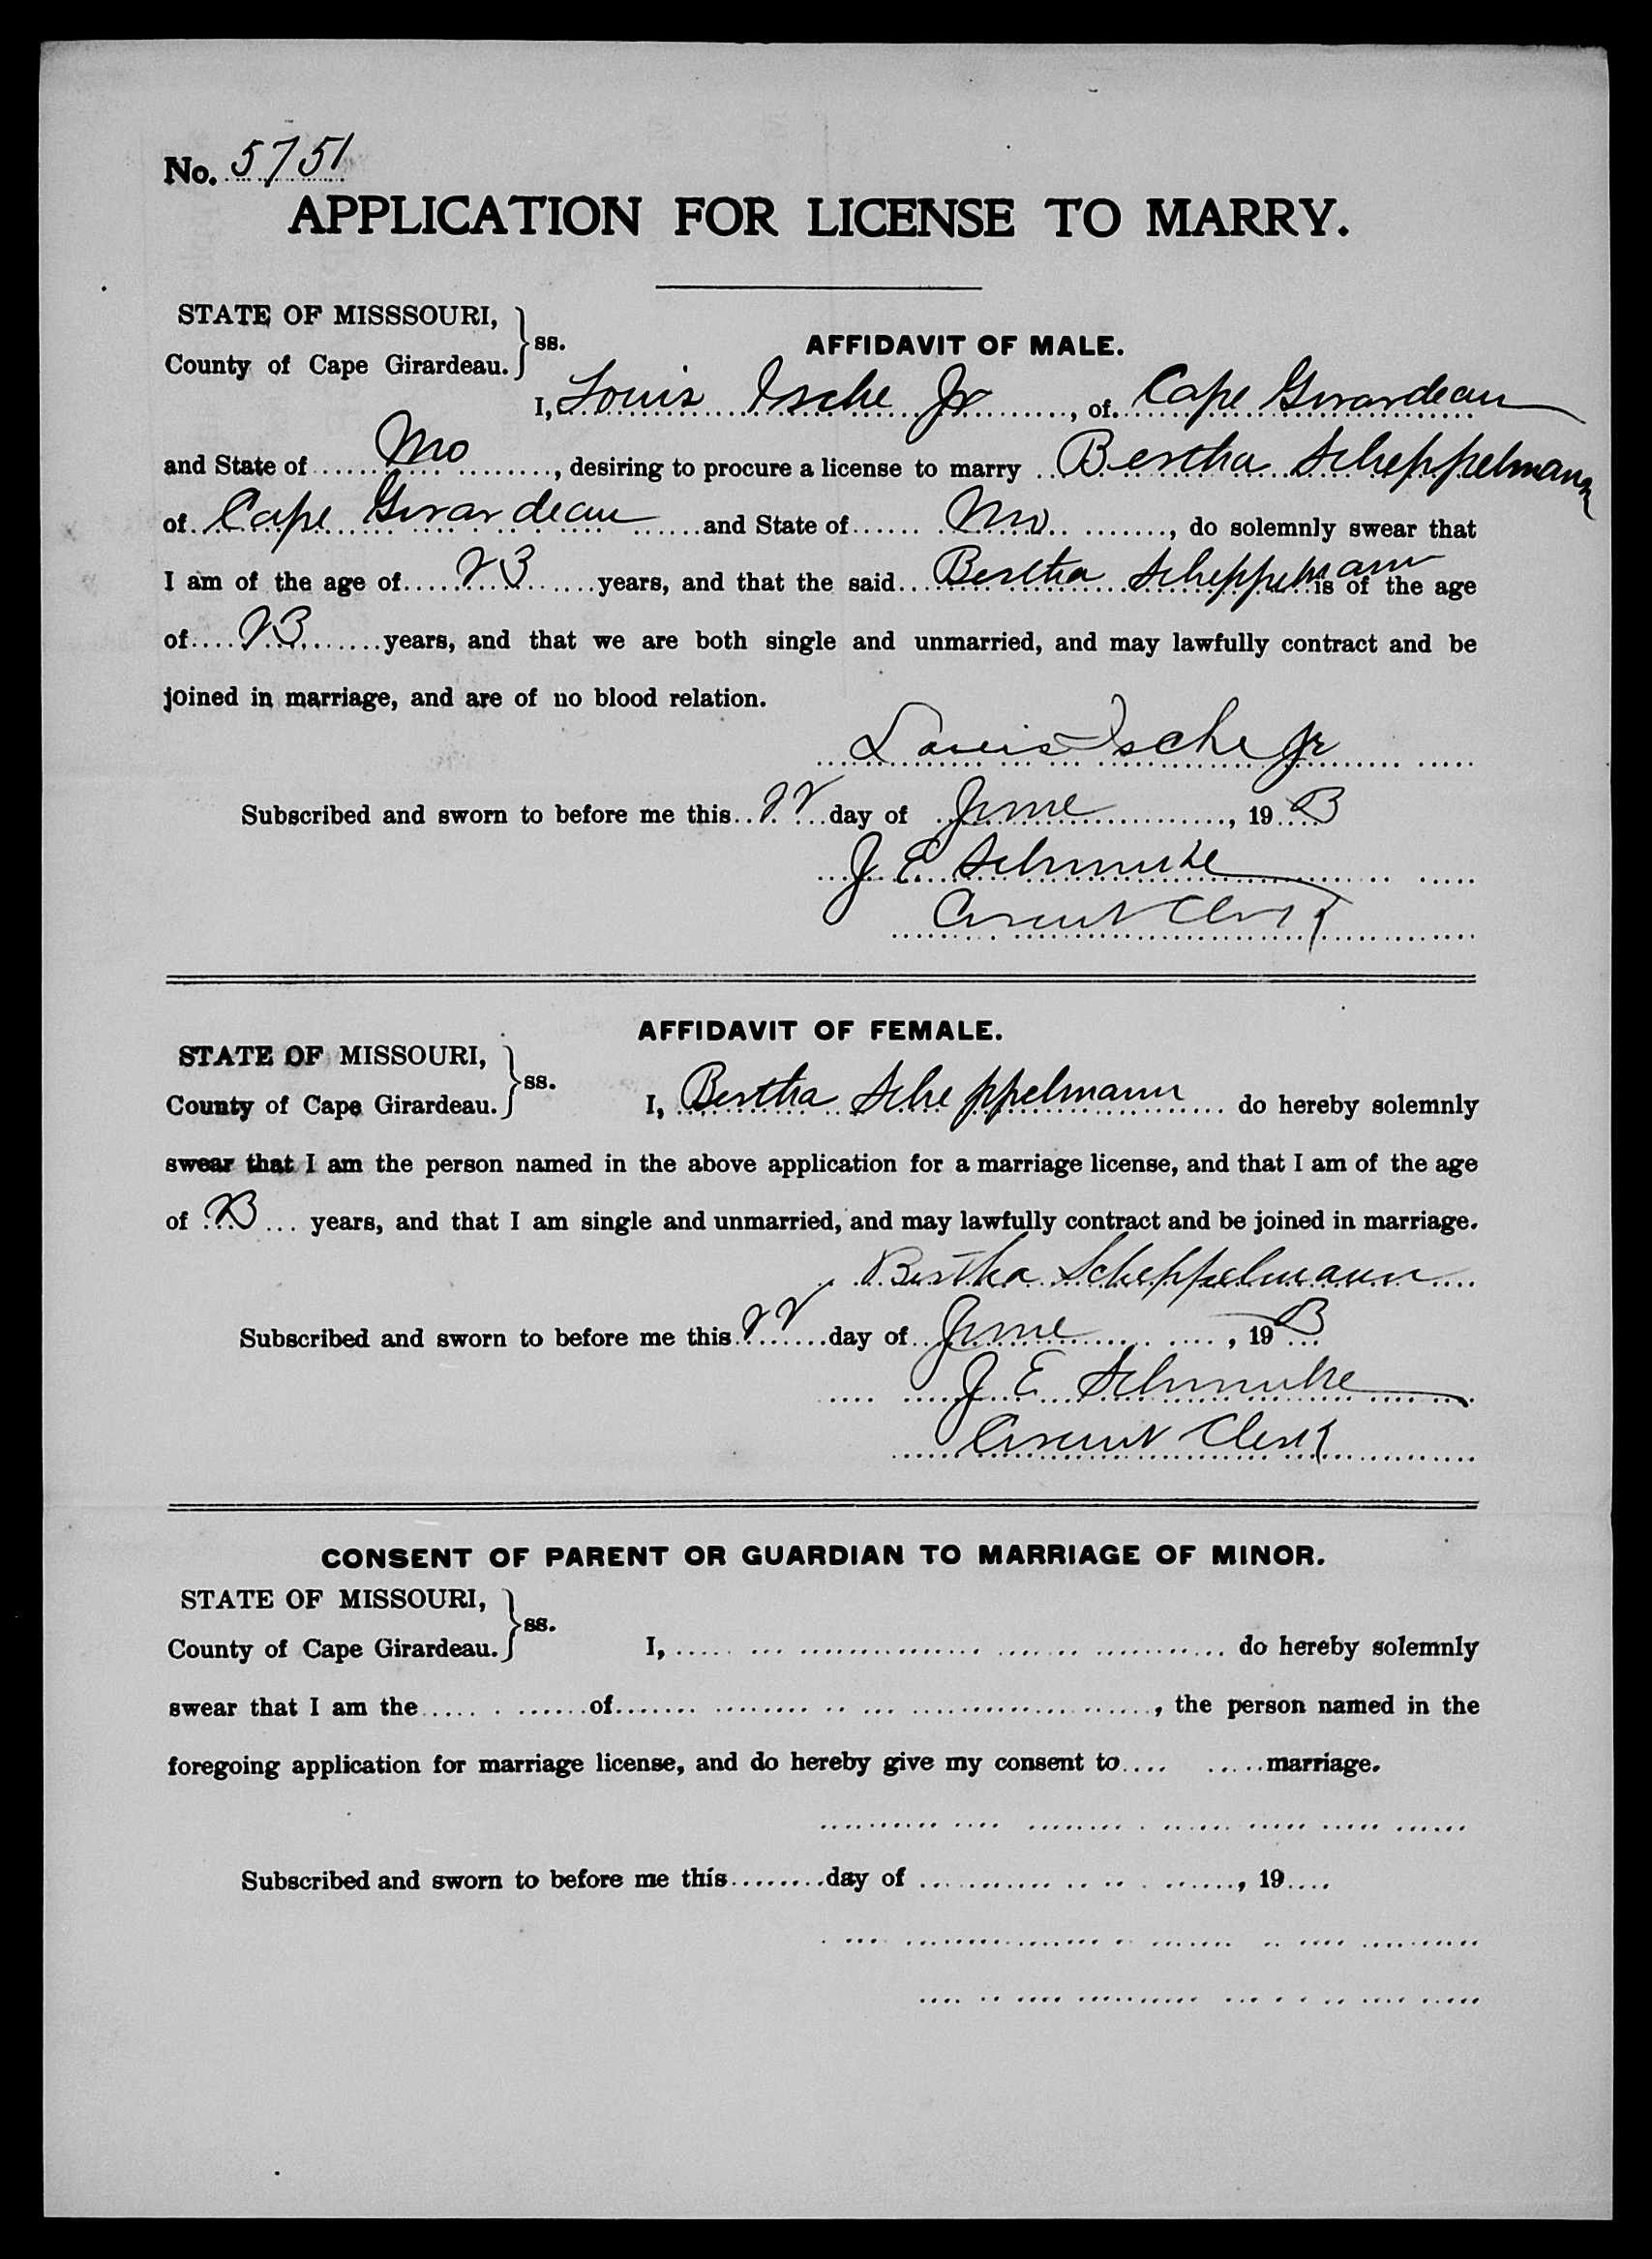 No. 5751
APPLICATION FOR LICENSE TO MARRY.
STATE OF MISSSOURI,
County of Cape Girardeau. } ss.
AFFIDAVIT OF MALE.
I, Louis Ische Jr, of Cape Girardeau
and State of Mo, desiring to procure a license to marry Bertha Scheppelmann
of Cape Girardeau and State of Mo, do solemnly swear that
I am of the age of 23 years, and that the said Bertha Scheppelmann is of the age
of 23 years, and that we are both single and unmarried, and may lawfully contract and be
joined in marriage, and are of no blood relation.
Louis Ische Jr
Subscribed and sworn to before me this 22 day of June, 1913
J E Schmuke
Circuit Clerk
AFFIDAVIT OF FEMALE.
STATE OF MISSOURI,
County of Cape Girardeau. } ss.
I, Bertha Scheppelmann do hereby solemnly
swear that I am the person named in the above application for a marriage license, and that I am of the age
of 23 years, and that I am single and unmarried, and may lawfully contract and be joined in marriage.
Bertha Scheppelmann
Subscribed and sworn to before me this 22 day of June, 1913
J E Schmuke
Circuit Clerk
CONSENT OF PARENT OR GUARDIAN TO MARRIAGE OF MINOR.
STATE OF MISSOURI,
County of Cape Girardeau. } ss.
I, do hereby solemnly
swear that I am the of, the person named in the
foregoing application for marriage license, and do hereby give my consent to marriage.
Subscribed and sworn to before me this day of, 19